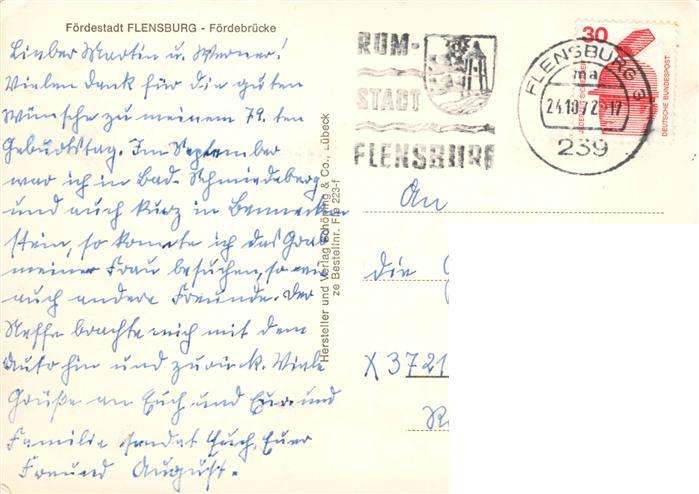 Fördestadt FLENSBURG - Fördebrücke
Lieber Martin u. Werner!
Vielen Dank für die guten
Wünsche zu meinem 79. ten
Geburtstag. Im September
war ich in Bad-Schmiedeberg
und auch kurz in Bennecken
stein, so konnte ich das Grab
meiner Frau besuchen, so wie
auch andere Freunde. Der
Neffe brachte mich mit dem
Auto hin und zurück. Viele
Grüße an Euch und Eure und
Familie sendet Euch, Euer
Freund August.
Hersteller und Verlag Schöning & Co., Lübeck
ze Bestellnr. Fle 223-f
RUM-
STADT
FLENSBURG
FLENSBURG
ma
24.10.72-17
239
30
DEUTSCHE BUNDESPOST
An
die
X 3721